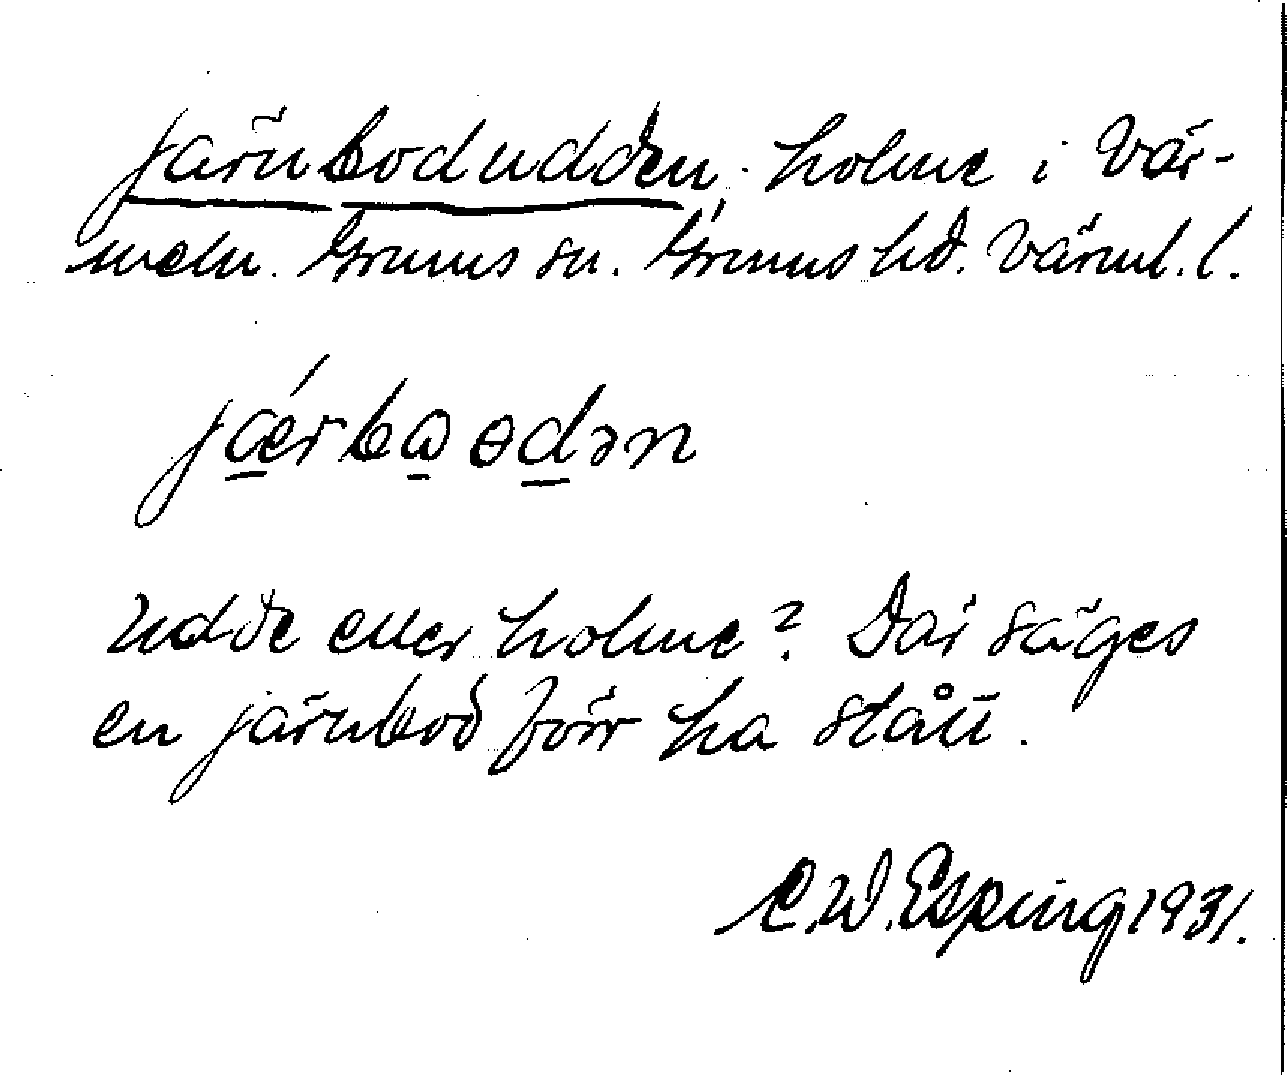 Järnbodudden. holme i Vär-
meln. Grums sn. Grums hd. Värml. l.
jǽrbɷɵdən
Udde eller holme? Där säges
en järnbod förr ha stått.
C.W. Esping 1931.